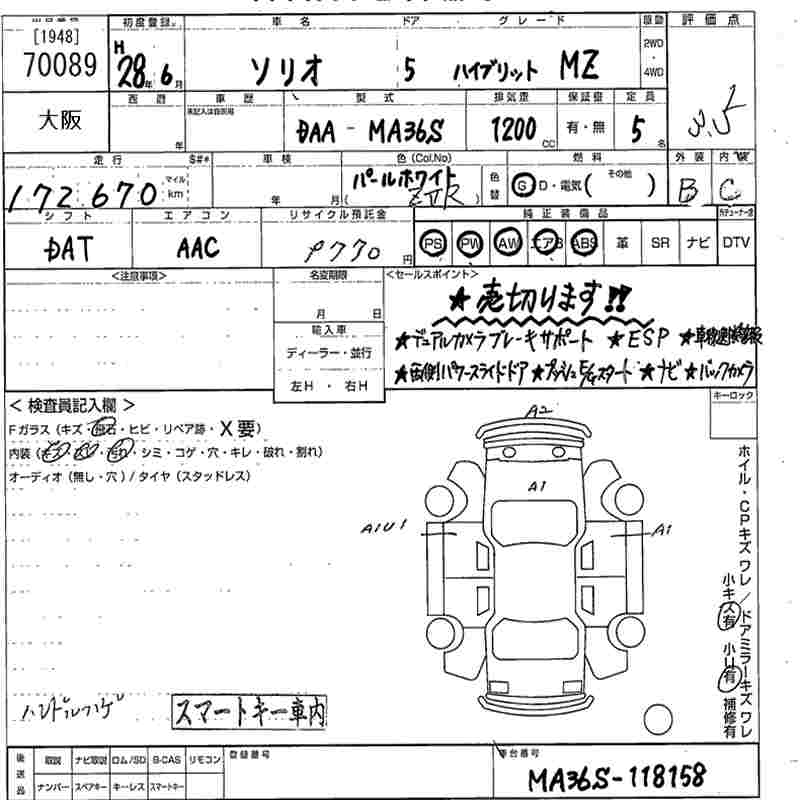 [1948]
70089
初度登録 車名 ドア グレード 駆動 評価点
H 28年 6月 ソリオ 5 ハイブリット MZ 2WD・4WD
3.5
大阪
西暦 車歴 型式 排気量 保証書 定員
年 未記入は自家用 DAA - MA36S 1200cc 有・無 5名
走行 S#* 車検 色(Col,No) 燃料 外装 内装
172,670 マイル km 年 月 パールホワイト (ZVR) 色替 G D・電気( その他 ) B C
シフト エアコン リサイクル預託金 純正装備品
DAT AAC 9770円 PS PW AW エアB ABS 革 SR ナビ DTV
<注意事項> 名変期限 <セールスポイント>
月 日
★売切ります!!
輸入車
★デュアルカメラブレーキサポート ★ESP
ディーラー・並行
★両側パワースライドドア ★プッシュE/gスタート ★ナビ ★バックカメラ
左H・右H
<検査員記入欄> キーロック
Fガラス(キズ・飛石・ヒビ・リペア跡・X要)
内装(・汚れ・シミ・コゲ・穴・キレ・破れ・割れ)
オーディオ(無し・穴)/タイヤ(スタッドレス)
A2
A1
A1U1
A1
ホイル・CPキズ ワレ/ドアミラーキズ ワレ
小キズ有 小U有 補修有
ハンドルハゲ
スマートキー車内
後送品 取説 ナビ取説 ロム/SD B-CAS リモコン 登録番号 車台番号
ナンバー スペアキー キーレス スマートキー
MA36S-118158